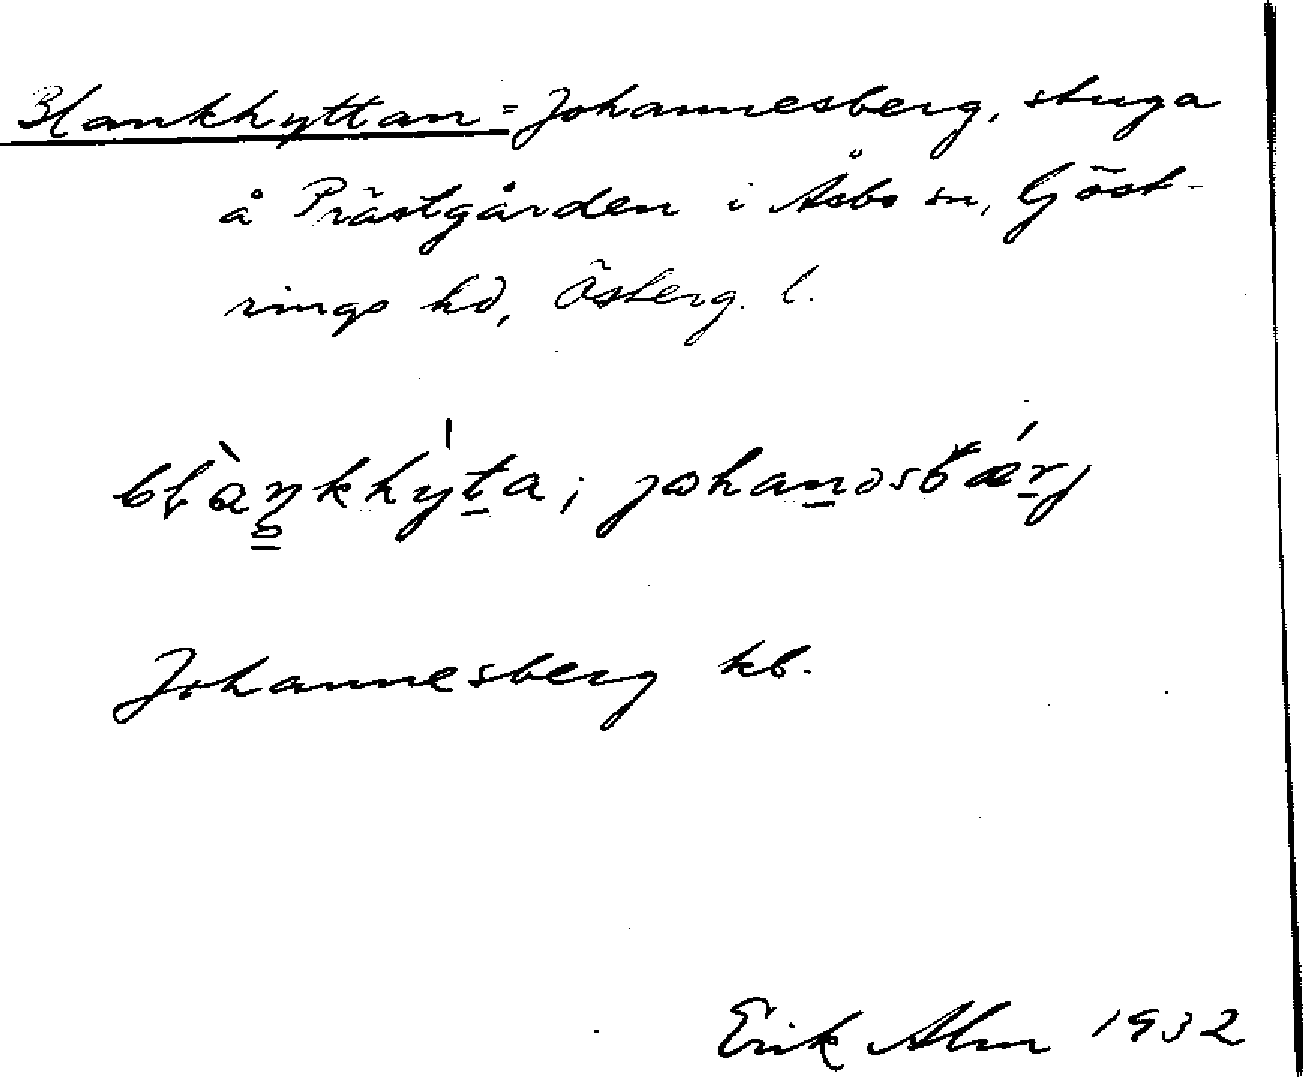 Blankhyttan = Johannesberg, stuga
å Prästgården i Åsbo sn, Göst-
rings hd, Österg. l.
blàŋkhỳta; johanəsbǽrj
Johannesberg kb.
Erik Alm 1932